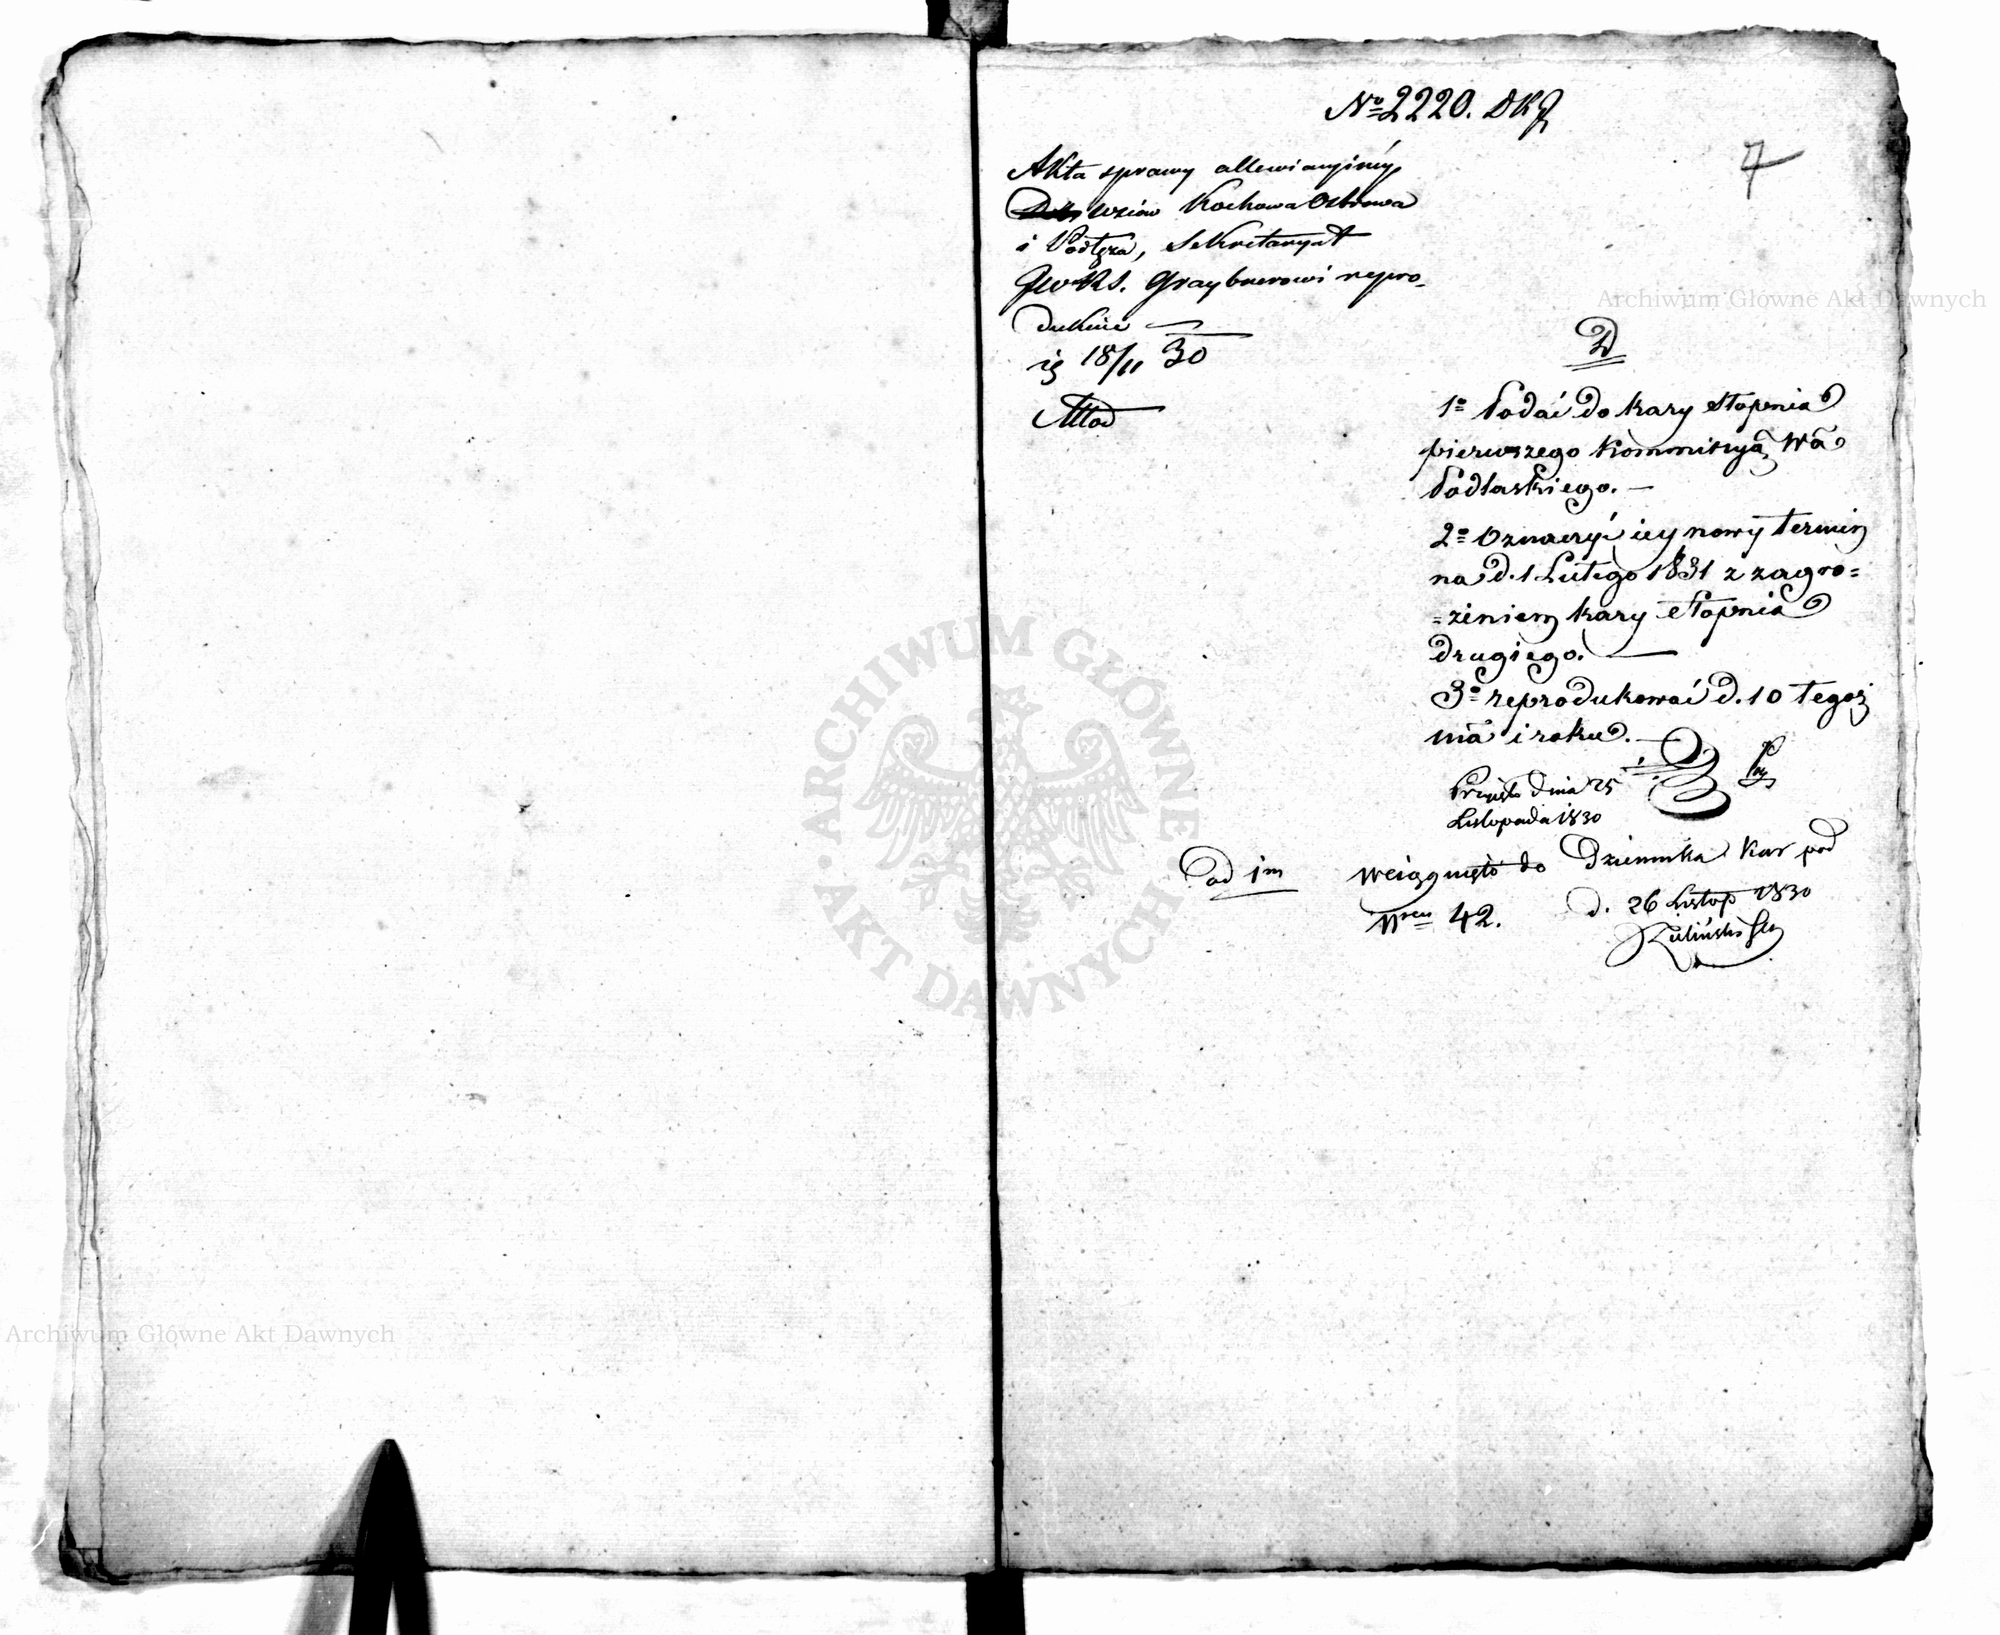 № 2220. DKJ
7
Akta sprawy allewiacyiney
wsiów Kochowa Ostrowa
i Podłęża, Sekretaryat
JWRS. Graybnerowi repro-
dukuie
18/11 30
D
1º Podać do kary stopnia
pierwszego Kommissyą Wa
Podlaskiego. —
2º Oznaczyć iey nowy termin
na d. 1 Lutego 1831 z zagro=
=żeniem kary stopnia
drugiego. —
3º reprodukować d. 10 tegoż
mca i roku. —
Przyięto dnia 25
Listopada 1830
ad 1m wciągnięto do Dziennika Kar pod
Nrem 42. d. 26 Listop 1830
ARCHIWUM GŁÓWNE
AKT DAWNYCH
Archiwum Główne Akt Dawnych
Archiwum Główne Akt Dawnych